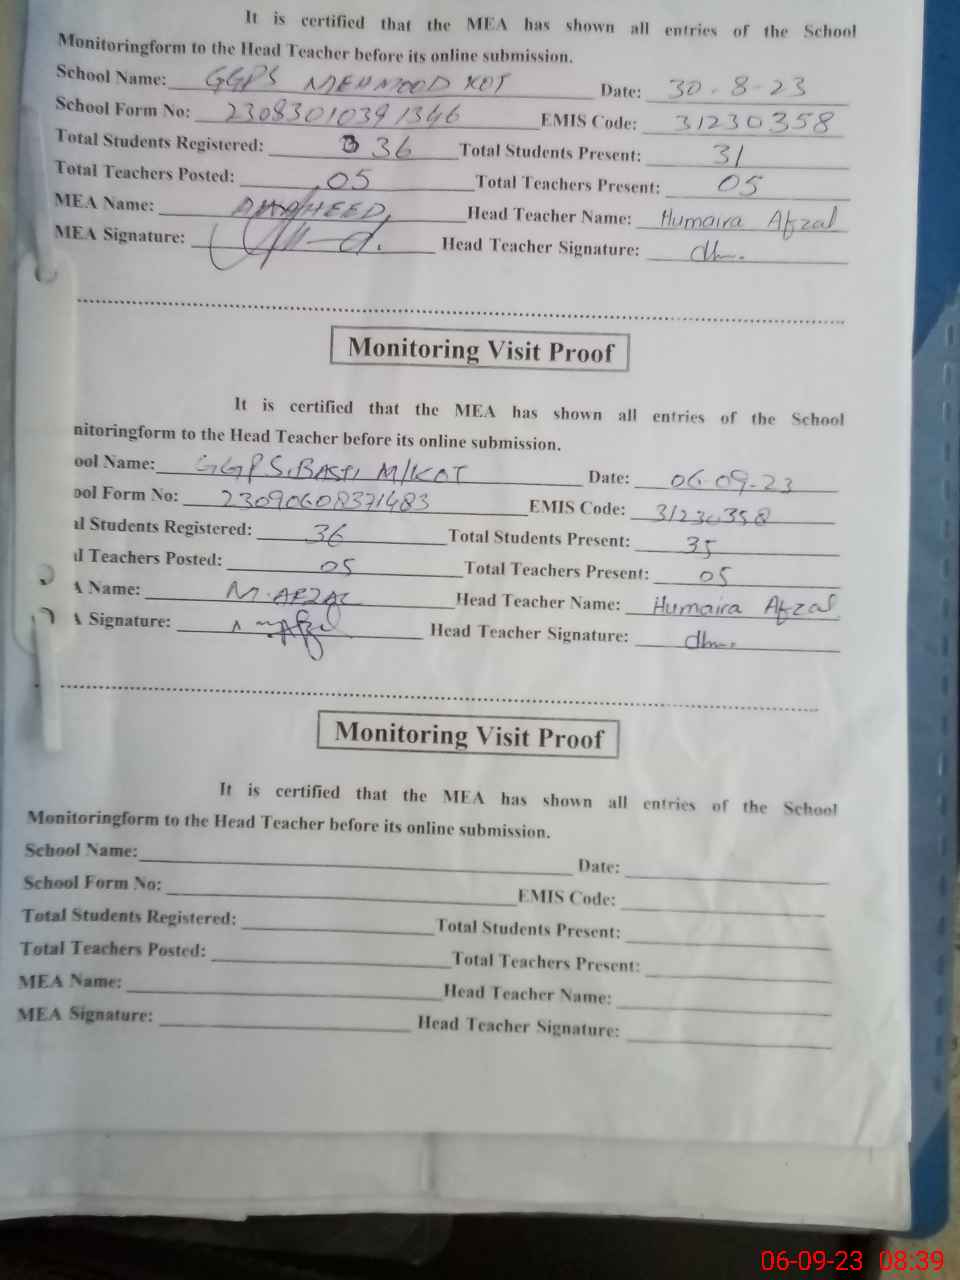 It is certified that the MEA has shown all entries of the School
Monitoringform to the Head Teacher before its online submission.
School Name: GGPS MEHMOOD KOT Date: 30-8-23
School Form No: 23083010391346 EMIS Code: 31230358
Total Students Registered: 36 Total Students Present: 31
Total Teachers Posted: 05 Total Teachers Present: 05
MEA Name: Head Teacher Name: Humaira Afzal
MEA Signature: Head Teacher Signature:
Monitoring Visit Proof
It is certified that the MEA has shown all entries of the School
nitoringform to the Head Teacher before its online submission.
ool Name: GGPS BASTI M/KOT Date: 06-09-23
ool Form No: 23090608371483 EMIS Code: 31230358
al Students Registered: 36 Total Students Present: 35
l Teachers Posted: 05 Total Teachers Present: 05
A Name: M. AFZAL Head Teacher Name: Humaira Afzal
A Signature: Head Teacher Signature:
Monitoring Visit Proof
It is certified that the MEA has shown all entries of the School
Monitoringform to the Head Teacher before its online submission.
School Name: Date:
School Form No: EMIS Code:
Total Students Registered: Total Students Present:
Total Teachers Posted: Total Teachers Present:
MEA Name: Head Teacher Name:
MEA Signature: Head Teacher Signature:
06-09-23 08:39